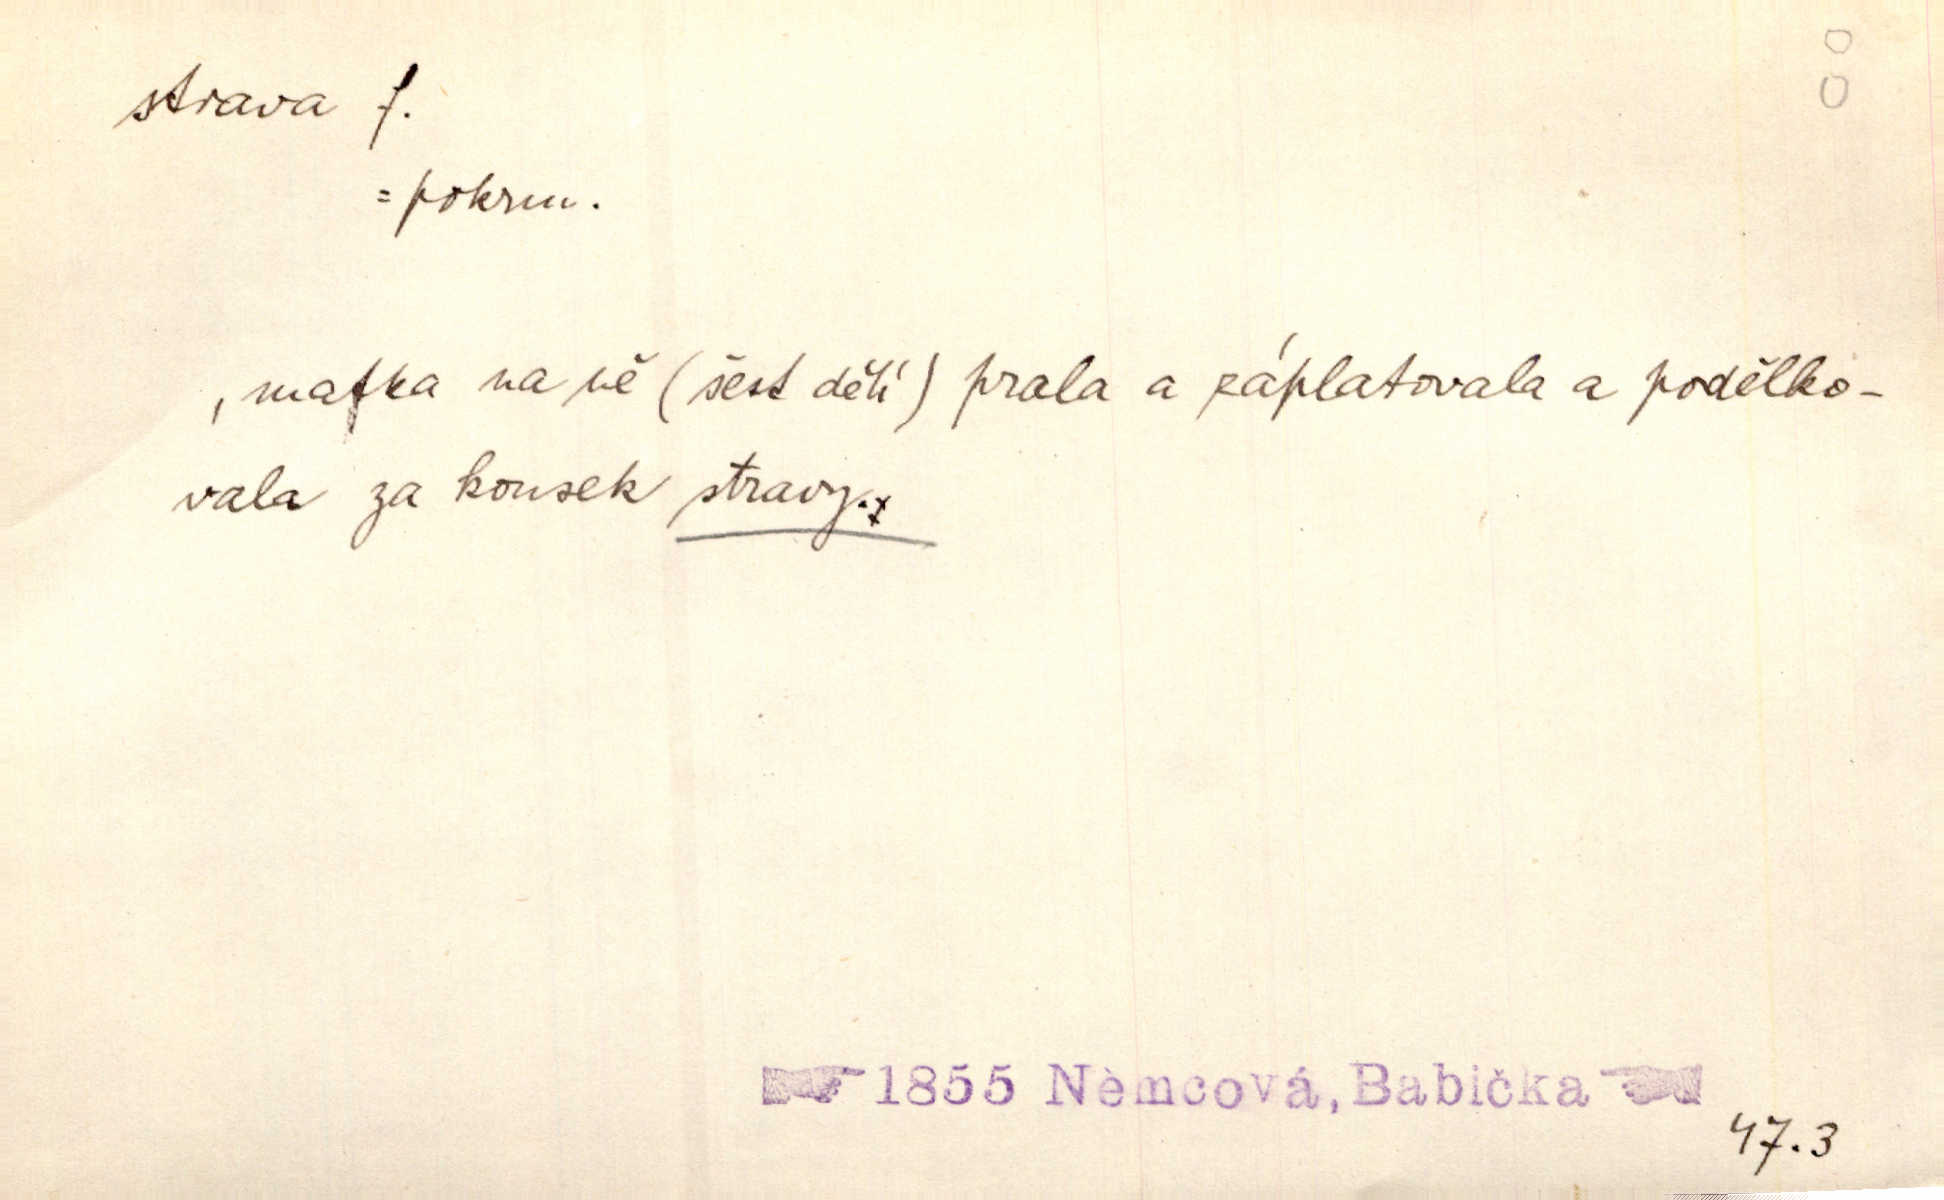 strava f.
= pokrm.
, matka na ně (šest dětí) prala a záplatovala a podělko-
vala za kousek stravy.
1855 Němcová, Babička
47.3